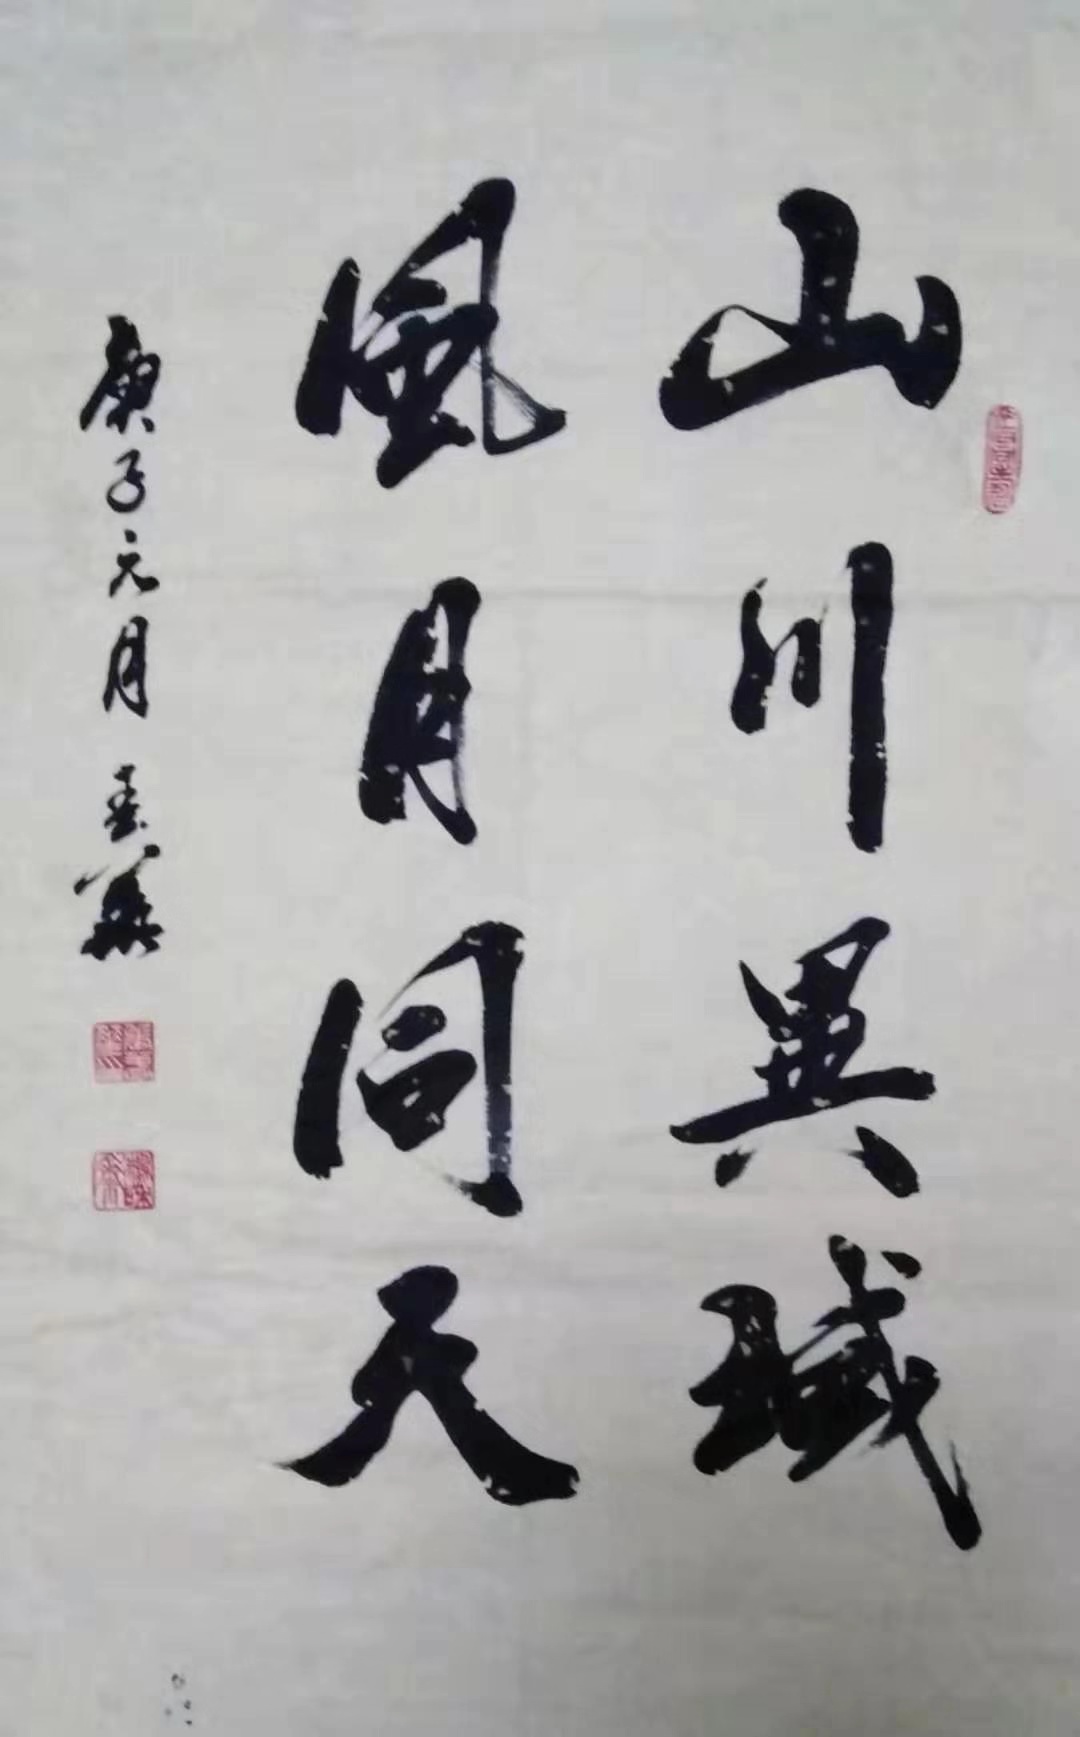 山川異域
風月同天
庚子元月